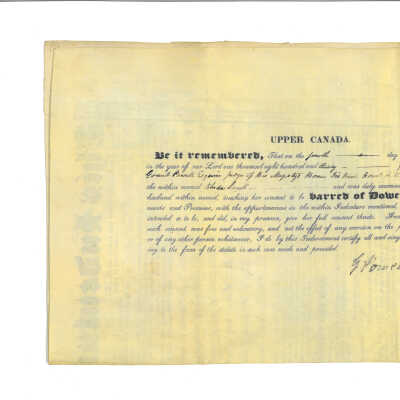 UPPER CANADA.
Be it remembered, That on the fourth day
in the year of our Lord one thousand eight hundred and thirty
Grant Powell Esquire Judge of His Majesty's Home District Court
the within named and was duly examined
husband within named, touching her consent to be barred of Dowe
ments and Premises, with the appurtenances in the within Indenture mentioned,
intended so to be, and did, in my presence, give her full consent thereto.
such consent was free and voluntary, and not the effect of any coercion on the p
or of any other person whatsoever. I do by this Indorsement certify all and sing
ing to the form of the statute in such case made and provided.
G Powell